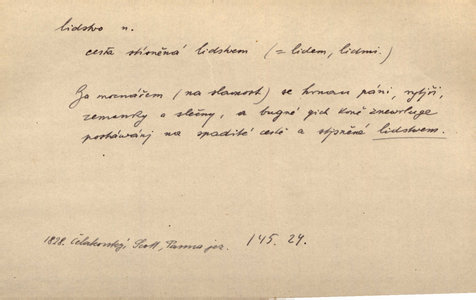 lidstvo n.
cesta stísněná lidstvem (= lidem, lidmi.)
Za mocnářem (na slavnost) se hrnau páni, rytjři,
zemanky a slečny, a bugné gich koně znewrluge
postáwánj na spadité cestě a stjsněná lidstwem.
1828. Čelakovský, Scott, Panna jez. 145. 24.